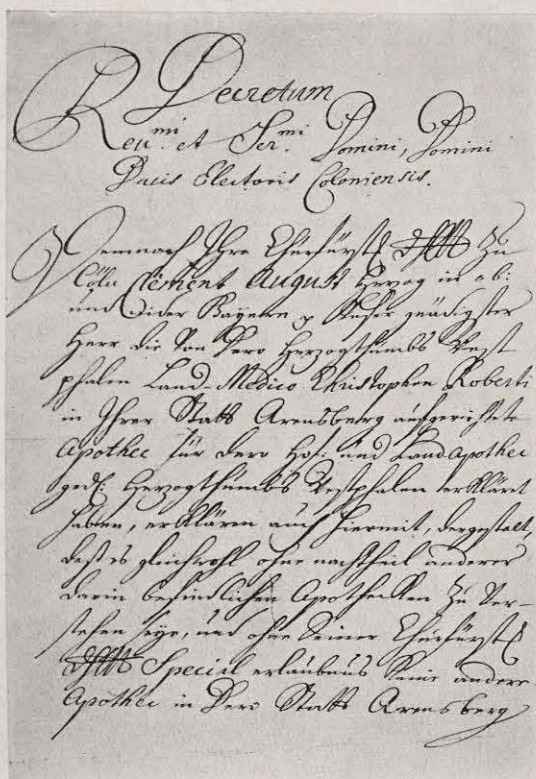 Decretum
Reu.mi et Ser.mi Domini, Domini
Ducis Electoris Coloniensis.
Demnach Ihre Churfürstl. zu
Cöln Clement August Herzog in ob:
und Nider Bayern p Unser gnädigster
Herr die von Dero Herzogthumbs West
phalen Land-Medico Christophen Roberti
in Ihrer Statt Arensberg aufgerichtete
Apothec für Dero Hof: und Land Apothec
gedl: Herzogthumbs Westphalen erkläret
haben, erklären auch hiermit, dergestalt,
daß es gleichwohl ohne nachtheil anderer
darin befindlichen Apothecken zu ver-
stehen seye, und ohne Seiner Churfürstl
Special erlaubnus keine andere
Apothec in Dero Statt Arensberg